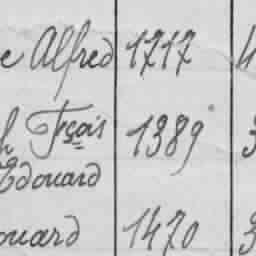 e Alfred 1717 4
h Fçois 1389 3
Edouard
ouard 1470 3